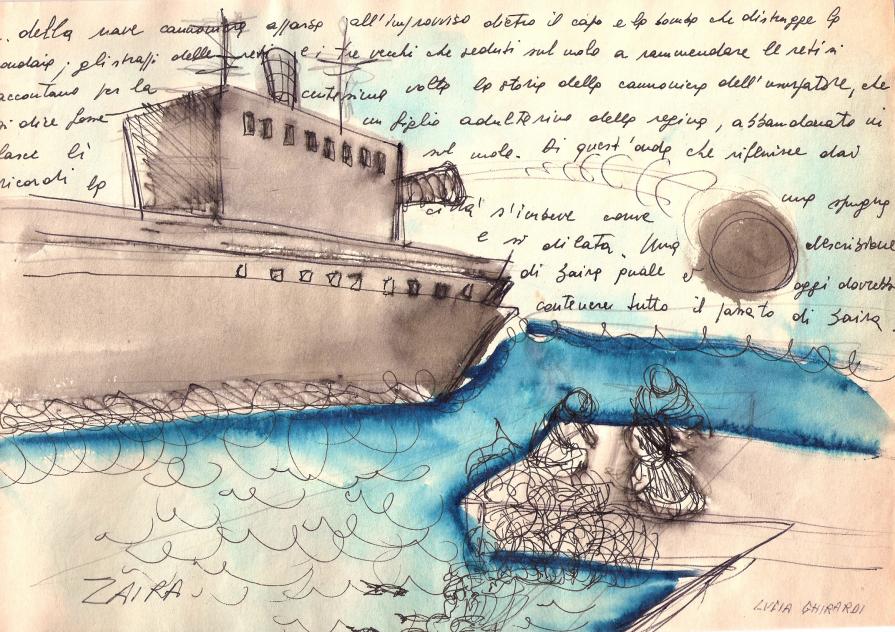 . della nave cannoniera apparsa all'improvviso dietro il capo e la bomba che distrugge la
ondaia; gli strappi delle reti e i tre vecchi che seduti sul molo a rammendare le reti si
accontano per la centesima volta la storia della cannoniera dell'usurpatore, che
si dice fosse un figlio adulterino della regina, abbandonato in
fasce lì sul molo. Di quest'onda che rifluisce dai
ricordi la città s'imbeve come una spugna
e si dilata. Una descrizione
di Zaira quale è oggi dovrebbe
contenere tutto il passato di Zaira
ZAIRA
LUCIA GHIRARDI